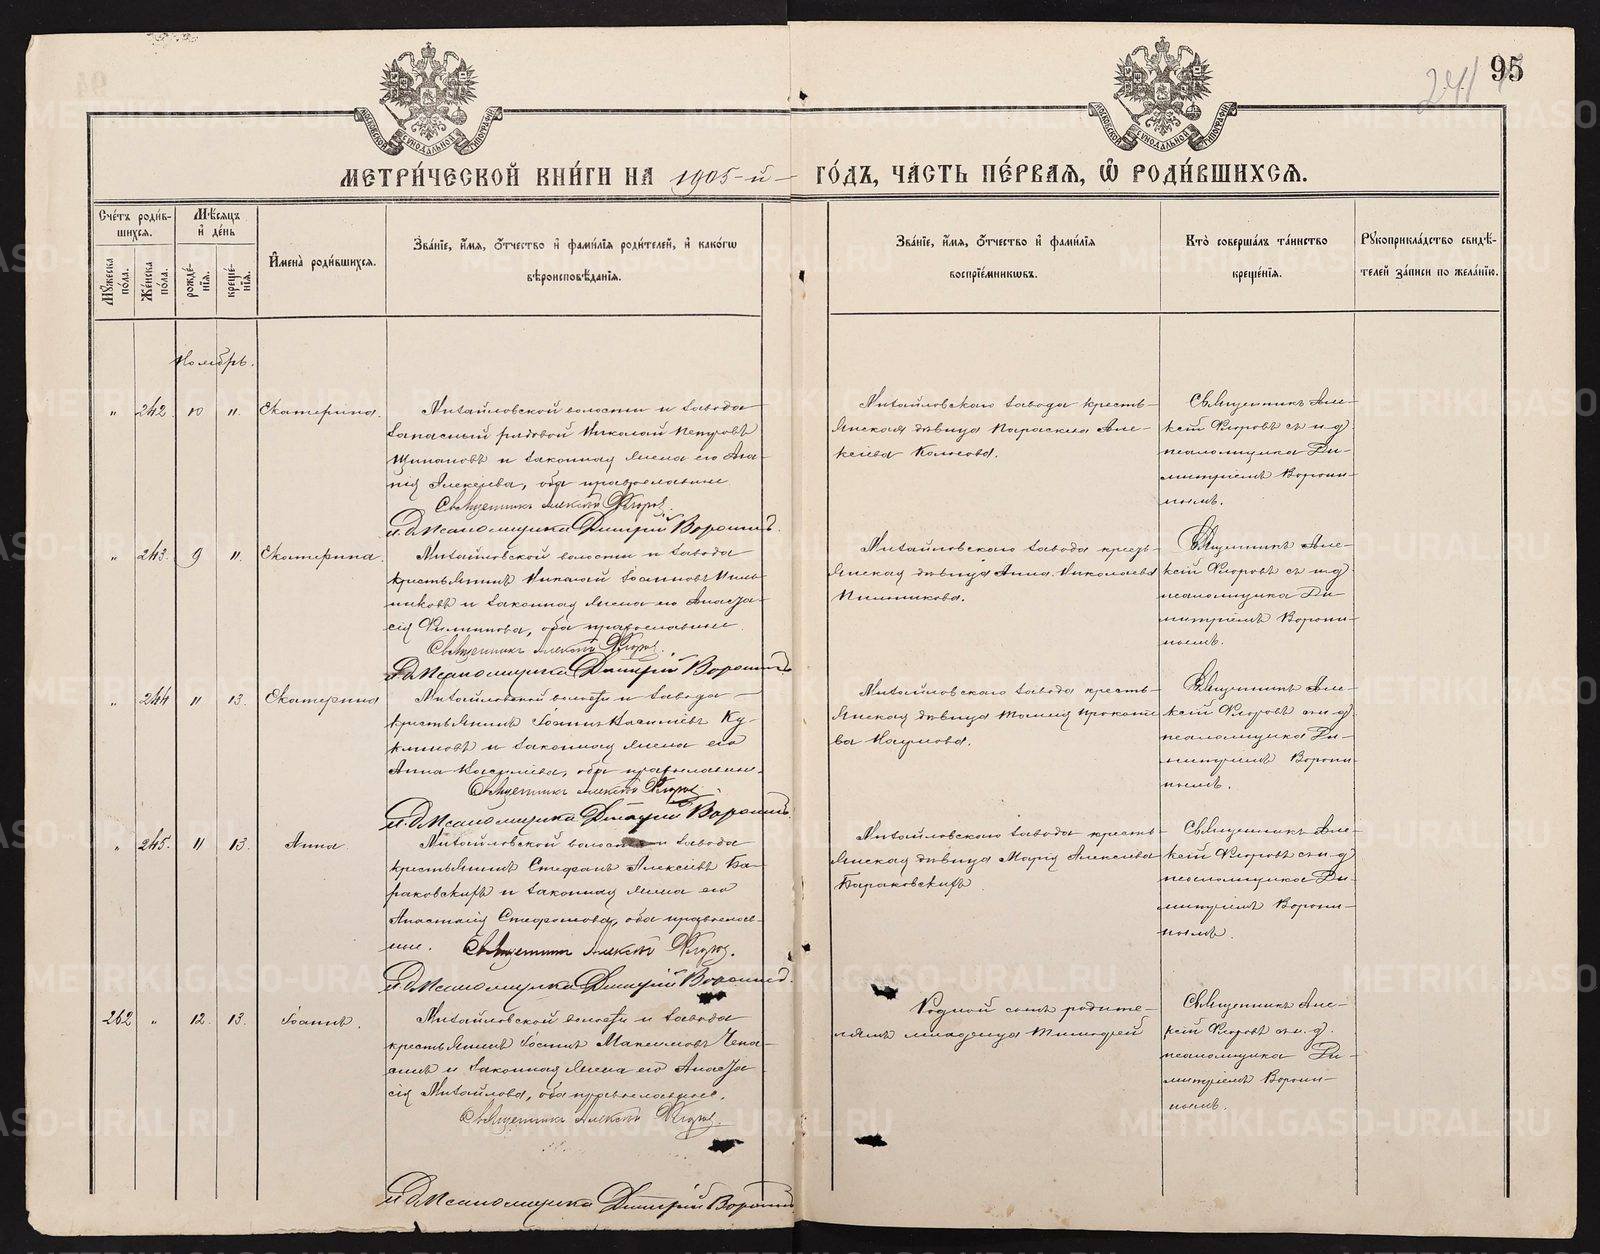 241
95
МЕТРИ́ЧЕСКОЙ КНИ́ГИ НА 1905-й ГО́ДЪ, ЧА́СТЬ ПЕ́РВАЯ, Ѡ҆ РОДИ́ВШИХСѦ.
Сче́тъ роди́в-
шихсѧ.
Мꙋ́жеска по́ла.
Же́нска по́ла.
Мѣ́сѧцъ
и҆ де́нь
рожде́-
нїѧ.
креще́-
нїѧ.
И҆мена̀ роди́вшихсѧ.
Зва́нїе, и҆́мѧ, ѻ҆́тчество и҆ фами́лїѧ роди́телей, и҆ како́гѡ
вѣроисповѣ́данїѧ.
Зва́нїе, и҆́мѧ, ѻ҆́тчество и҆ фами́лїѧ
воспрїе́мникѡвъ.
Кто̀ соверша́лъ та́инство
креще́нїѧ.
Рꙋкоприкла́дство свидѣ́-
телей за́писи по жела́нїю.
Ноябрь.
" 242. 10 11. Екатерина.
Михайловской волости и завода
запасный рядовой Николай Петровъ
и законная жена его
Алексѣева, оба православные
Священникъ Алексѣй Флоровъ
и. д. Псаломщика Дмитрій Воронинъ.
Михайловскаго завода кресть-
янская дѣвица Параскева Але-
ксѣева
Священникъ Але-
ксѣй Флоровъ съ и. д.
псаломщика Ди-
митріемъ Ворони-
нымъ.
" 243. 9 11. Екатерина.
Михайловской волости и завода
крестьянинъ Николай Іоанновъ Пиль-
никовъ и законная жена его Анаста-
сія Филиппова, оба православные
Священникъ Алексѣй Флоровъ.
и. д. Псаломщика Дмитрій Воронинъ
Михайловскаго завода кресть-
янская дѣвица Анна Николаева
Пильникова.
Священникъ Але-
ксѣй Флоровъ съ и. д.
псаломщика Ди-
митріемъ Ворони-
нымъ.
" 244 11 13. Екатерина
Михайловской волости и завода
крестьянинъ Іоаннъ Васильевъ Ку-
и законная жена его
Анна Васильева, оба православные.
Священникъ Алексѣй Флоровъ.
и. д. Псаломщика Дмитрій Воронинъ.
Михайловскаго завода кресть-
янская дѣвица
ва Наумова.
Священникъ Але-
ксѣй Флоровъ съ и. д.
псаломщика Ди-
митріемъ Ворони-
нымъ.
" 245. 11 13. Анна.
Михайловской волости и завода
крестьянинъ Стефанъ Алексѣевъ Ба-
раковскихъ и законная жена его
Анастасія оба православ-
ные. Священникъ Алексѣй Флоровъ.
и. д. Псаломщика Дмитрій Воронинъ.
Михайловскаго завода кресть-
янская дѣвица Марія Алексѣева
Бараковскихъ
Священникъ Але-
ксѣй Флоровъ съ и. д.
псаломщика Ди-
митріемъ Ворони-
нымъ.
262 " 12. 13. Іоаннъ.
Михайловской волости и завода
крестьянинъ Іоаннъ Максимовъ
и законная жена его Анаста-
сія Михайлова, оба православные.
Священникъ Алексѣй Флоровъ.
и. д. Псаломщика Дмитрій Воронинъ
Родной сынъ родите-
лямъ младенца Тимофей
Священникъ Але-
ксѣй Флоровъ съ и. д.
псаломщика Ди-
митріемъ Ворони-
нымъ.